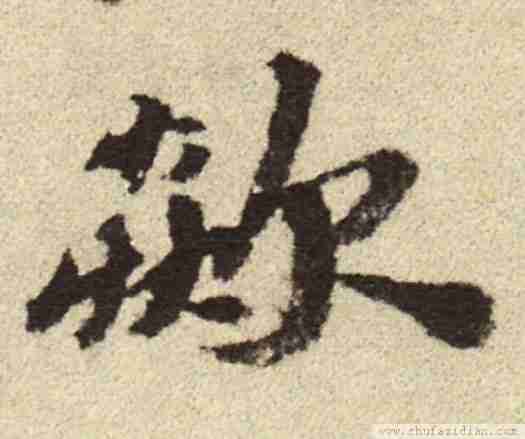 歘
www.shufazidian.com